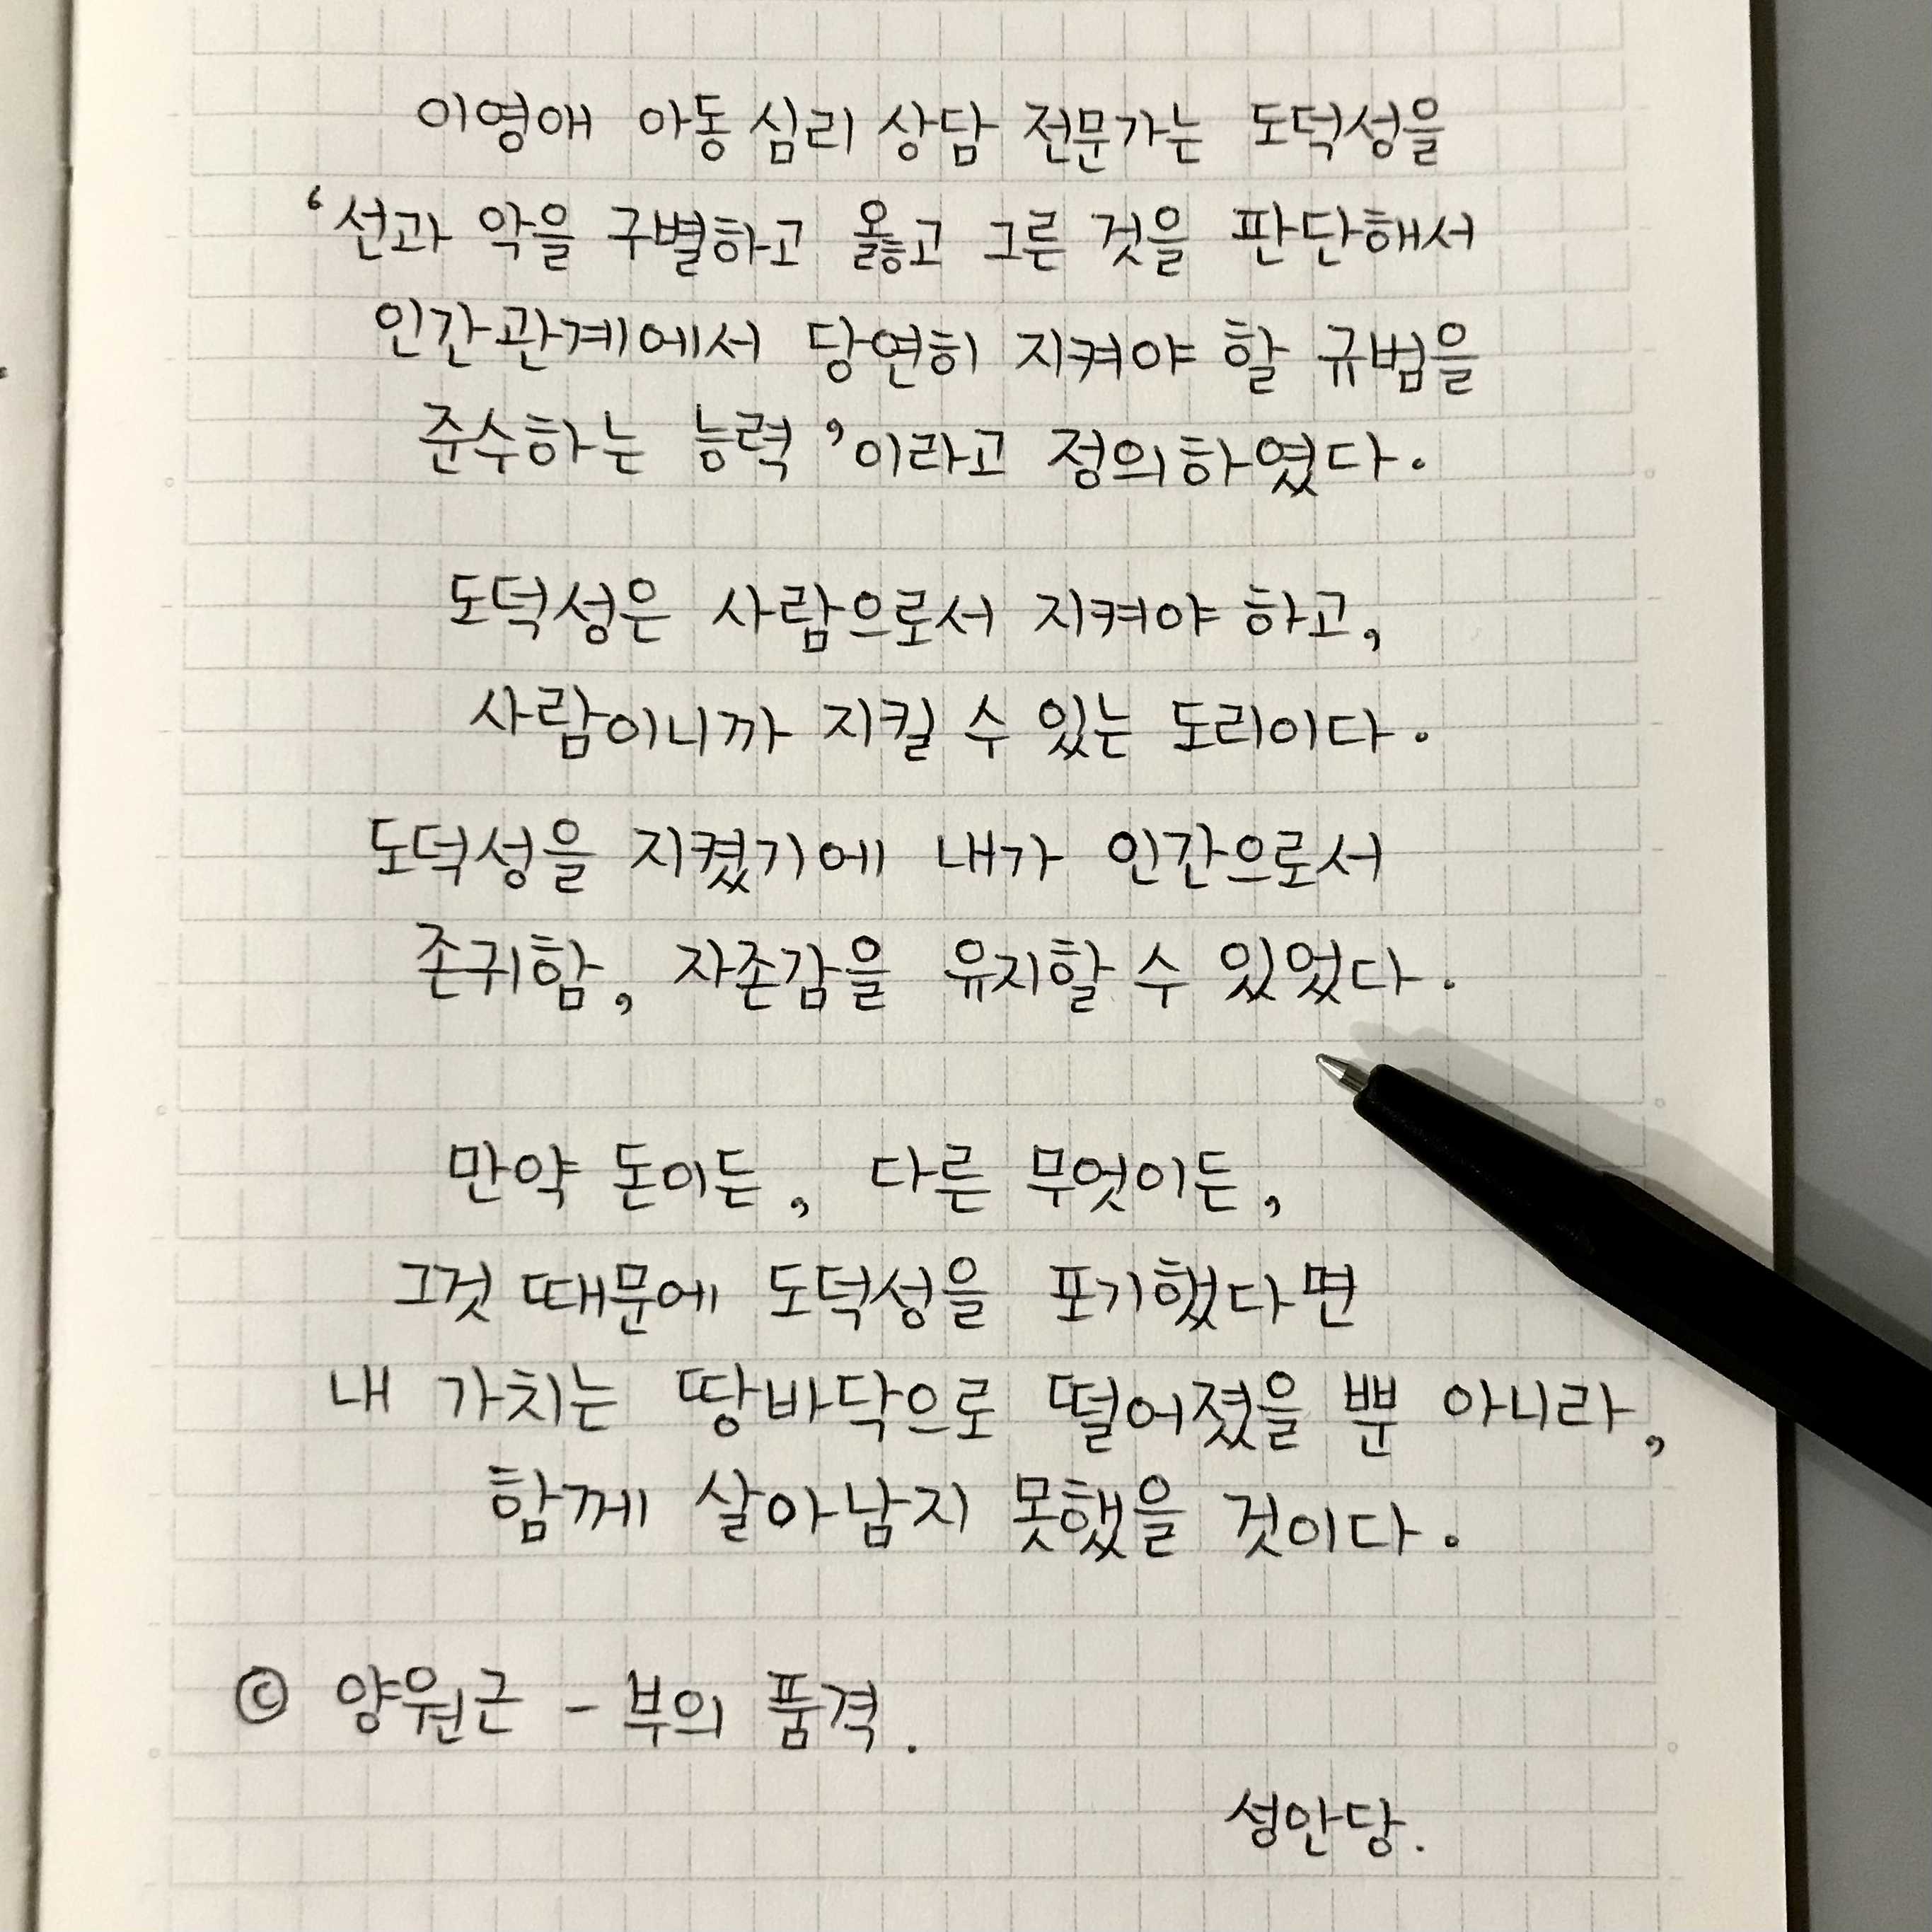 이영애 아동 심리 상담 전문가는 도덕성을
‘선과 악을 구별하고 옳고 그른 것을 판단해서
인간관계에서 당연히 지켜야 할 규범을
준수하는 능력’이라고 정의하였다.
도덕성은 사람으로서 지켜야 하고,
사람이니까 지킬 수 있는 도리이다.
도덕성을 지켰기에 내가 인간으로서
존귀함, 자존감을 유지할 수 있었다.
만약 돈이든, 다른 무엇이든,
그것 때문에 도덕성을 포기했다면
내 가치는 땅바닥으로 떨어졌을 뿐 아니라,
함께 살아남지 못했을 것이다.
© 양원근 - 부의 품격.
성안당.